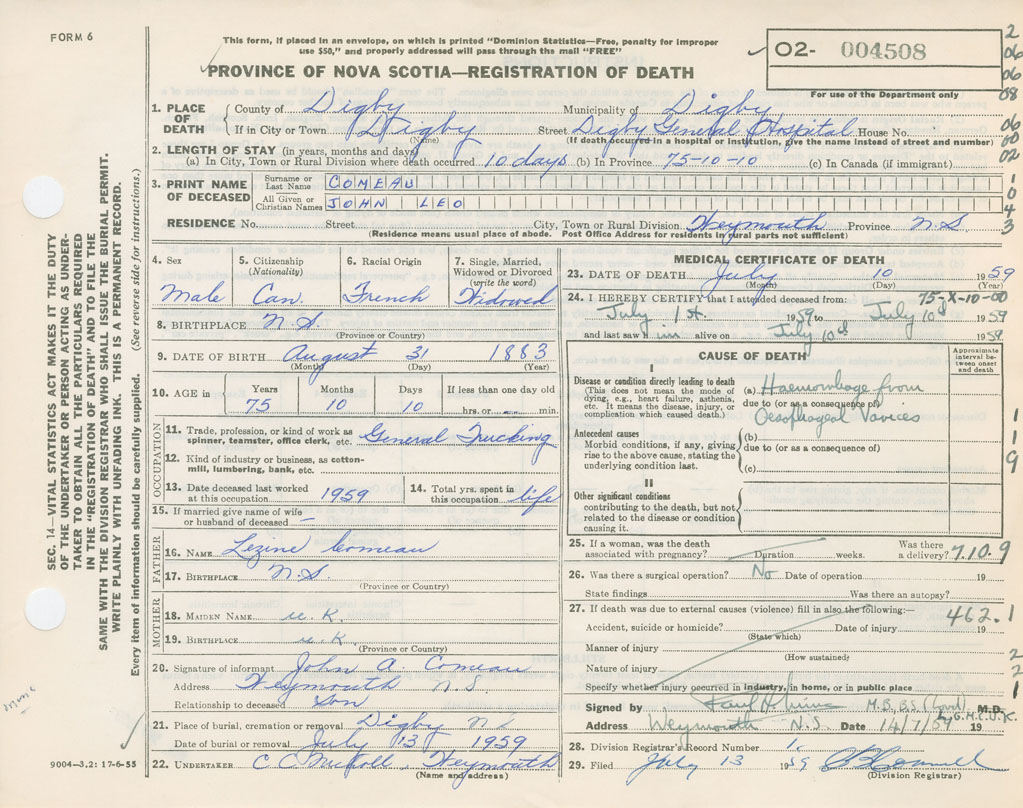 FORM 6
This form, if placed in an envelope, on which is printed "Dominion Statistics—Free, penalty for improper
use $50," and properly addressed will pass through the mail "FREE"
PROVINCE OF NOVA SCOTIA—REGISTRATION OF DEATH
02- 004508
For use of the Department only
2
06
06
08
06
00
02
1
0
4
3
1. PLACE OF DEATH County of Digby Municipality of Digby
If in City or Town Digby Street Digby General Hospital House No.
(Name) (If death occurred in a hospital or institution, give the name instead of street and number)
2. LENGTH OF STAY (in years, months and days)
(a) In City, Town or Rural Division where death occurred 10 days (b) In Province 75-10-10 (c) In Canada (if immigrant)
3. PRINT NAME OF DECEASED Surname or Last Name COMEAU
All Given or Christian Names JOHN LEO
RESIDENCE No. Street City, Town or Rural Division Weymouth Province N.S.
(Residence means usual place of abode. Post Office Address for residents in rural parts not sufficient)
4. Sex
Male
5. Citizenship
(Nationality)
Can.
6. Racial Origin
French
7. Single, Married,
Widowed or Divorced
(write the word)
Widowed
8. BIRTHPLACE N.S.
(Province or Country)
9. DATE OF BIRTH August 31 1883
(Month) (Day) (Year)
10. AGE in Years Months Days If less than one day old
75 10 10 hrs. or min.
OCCUPATION
11. Trade, profession, or kind of work as
spinner, teamster, office clerk, etc. General Trucking
12. Kind of industry or business, as cotton-
mill, lumbering, bank, etc.
13. Date deceased last worked
at this occupation 1959
14. Total yrs. spent in
this occupation life
15. If married give name of wife
or husband of deceased —
FATHER
16. NAME Lezine Comeau
17. BIRTHPLACE N.S.
(Province or Country)
MOTHER
18. MAIDEN NAME u.K.
19. BIRTHPLACE u.K
(Province or Country)
20. Signature of informant John A. Comeau
Address Weymouth N.S.
Relationship to deceased Son
21. Place of burial, cremation or removal Digby N.S
Date of burial or removal July 13 1959
22. UNDERTAKER C.C. Weymouth
(Name and address)
MEDICAL CERTIFICATE OF DEATH
23. DATE OF DEATH July 10 1959
(Month) (Day) (Year)
75-X-10-00
24. I HEREBY CERTIFY that I attended deceased from:
July 1st. 1959 to July 10d 1959
and last saw him alive on July 10d 1959
CAUSE OF DEATH
Approximate
interval be-
tween onset
and death
I
Disease or condition directly leading to death
(This does not mean the mode of
dying, e.g., heart failure, asthenia,
etc. It means the disease, injury, or
complication which caused death.)
(a) Haemorrhage from
due to (or as a consequence of)
Oesophageal Varices
Antecedent causes
Morbid conditions, if any, giving
rise to the above cause, stating the
underlying condition last.
(b)
due to (or as a consequence of)
(c)
II
Other significant conditions
contributing to the death, but not
related to the disease or condition
causing it.
1
1
9
25. If a woman, was the death
associated with pregnancy? Duration weeks.
Was there
a delivery? 7.10.9
26. Was there a surgical operation? No Date of operation 19
State findings Was there an autopsy?
27. If death was due to external causes (violence) fill in also the following:—
462.1
Accident, suicide or homicide? Date of injury 19
(State which)
Manner of injury 2
(How sustained)
Nature of injury 2
Specify whether injury occurred in industry, in home, or in public place 1
Signed by M.B., B.S. (Lond) M.D.
L.G.M.C.U.K.
Address Weymouth N.S. Date 14/7/59 19
28. Division Registrar's Record Number
29. Filed July 13 1959
(Division Registrar)
SEC. 14—VITAL STATISTICS ACT MAKES IT THE DUTY
OF THE UNDERTAKER OR PERSON ACTING AS UNDER-
TAKER TO OBTAIN ALL THE PARTICULARS REQUIRED
IN THE "REGISTRATION OF DEATH" AND TO FILE THE
SAME WITH THE DIVISION REGISTRAR WHO SHALL ISSUE THE BURIAL PERMIT.
WRITE PLAINLY WITH UNFADING INK. THIS IS A PERMANENT RECORD.
Every item of information should be carefully supplied. (See reverse side for instructions.)
9004-3.2: 17-6-55